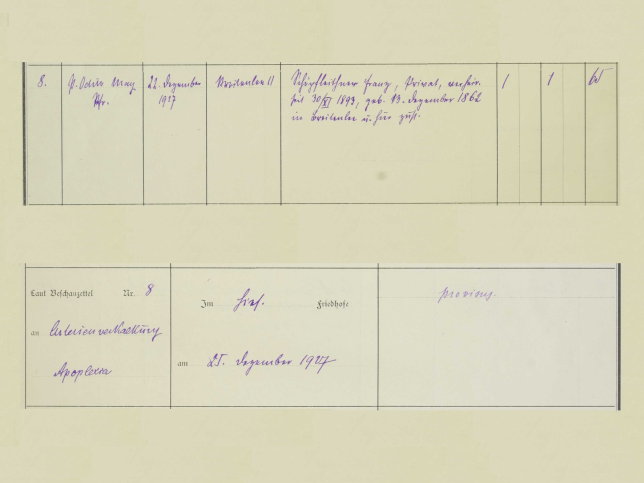 8.
P. Odilo May
Pfr.
22. Dezember
1927
Breitenlee 11
Franz, Privat, verheir.
seit 30/XI 1893, geb. 13. Dezember 1862
in Breitenlee u. hier zust.
1
1
65
Laut Beschauzettel Nr. 8
an Arterienverkalkung
Apoplexia
Im hies. Friedhofe
am 25. Dezember 1927
provisus.